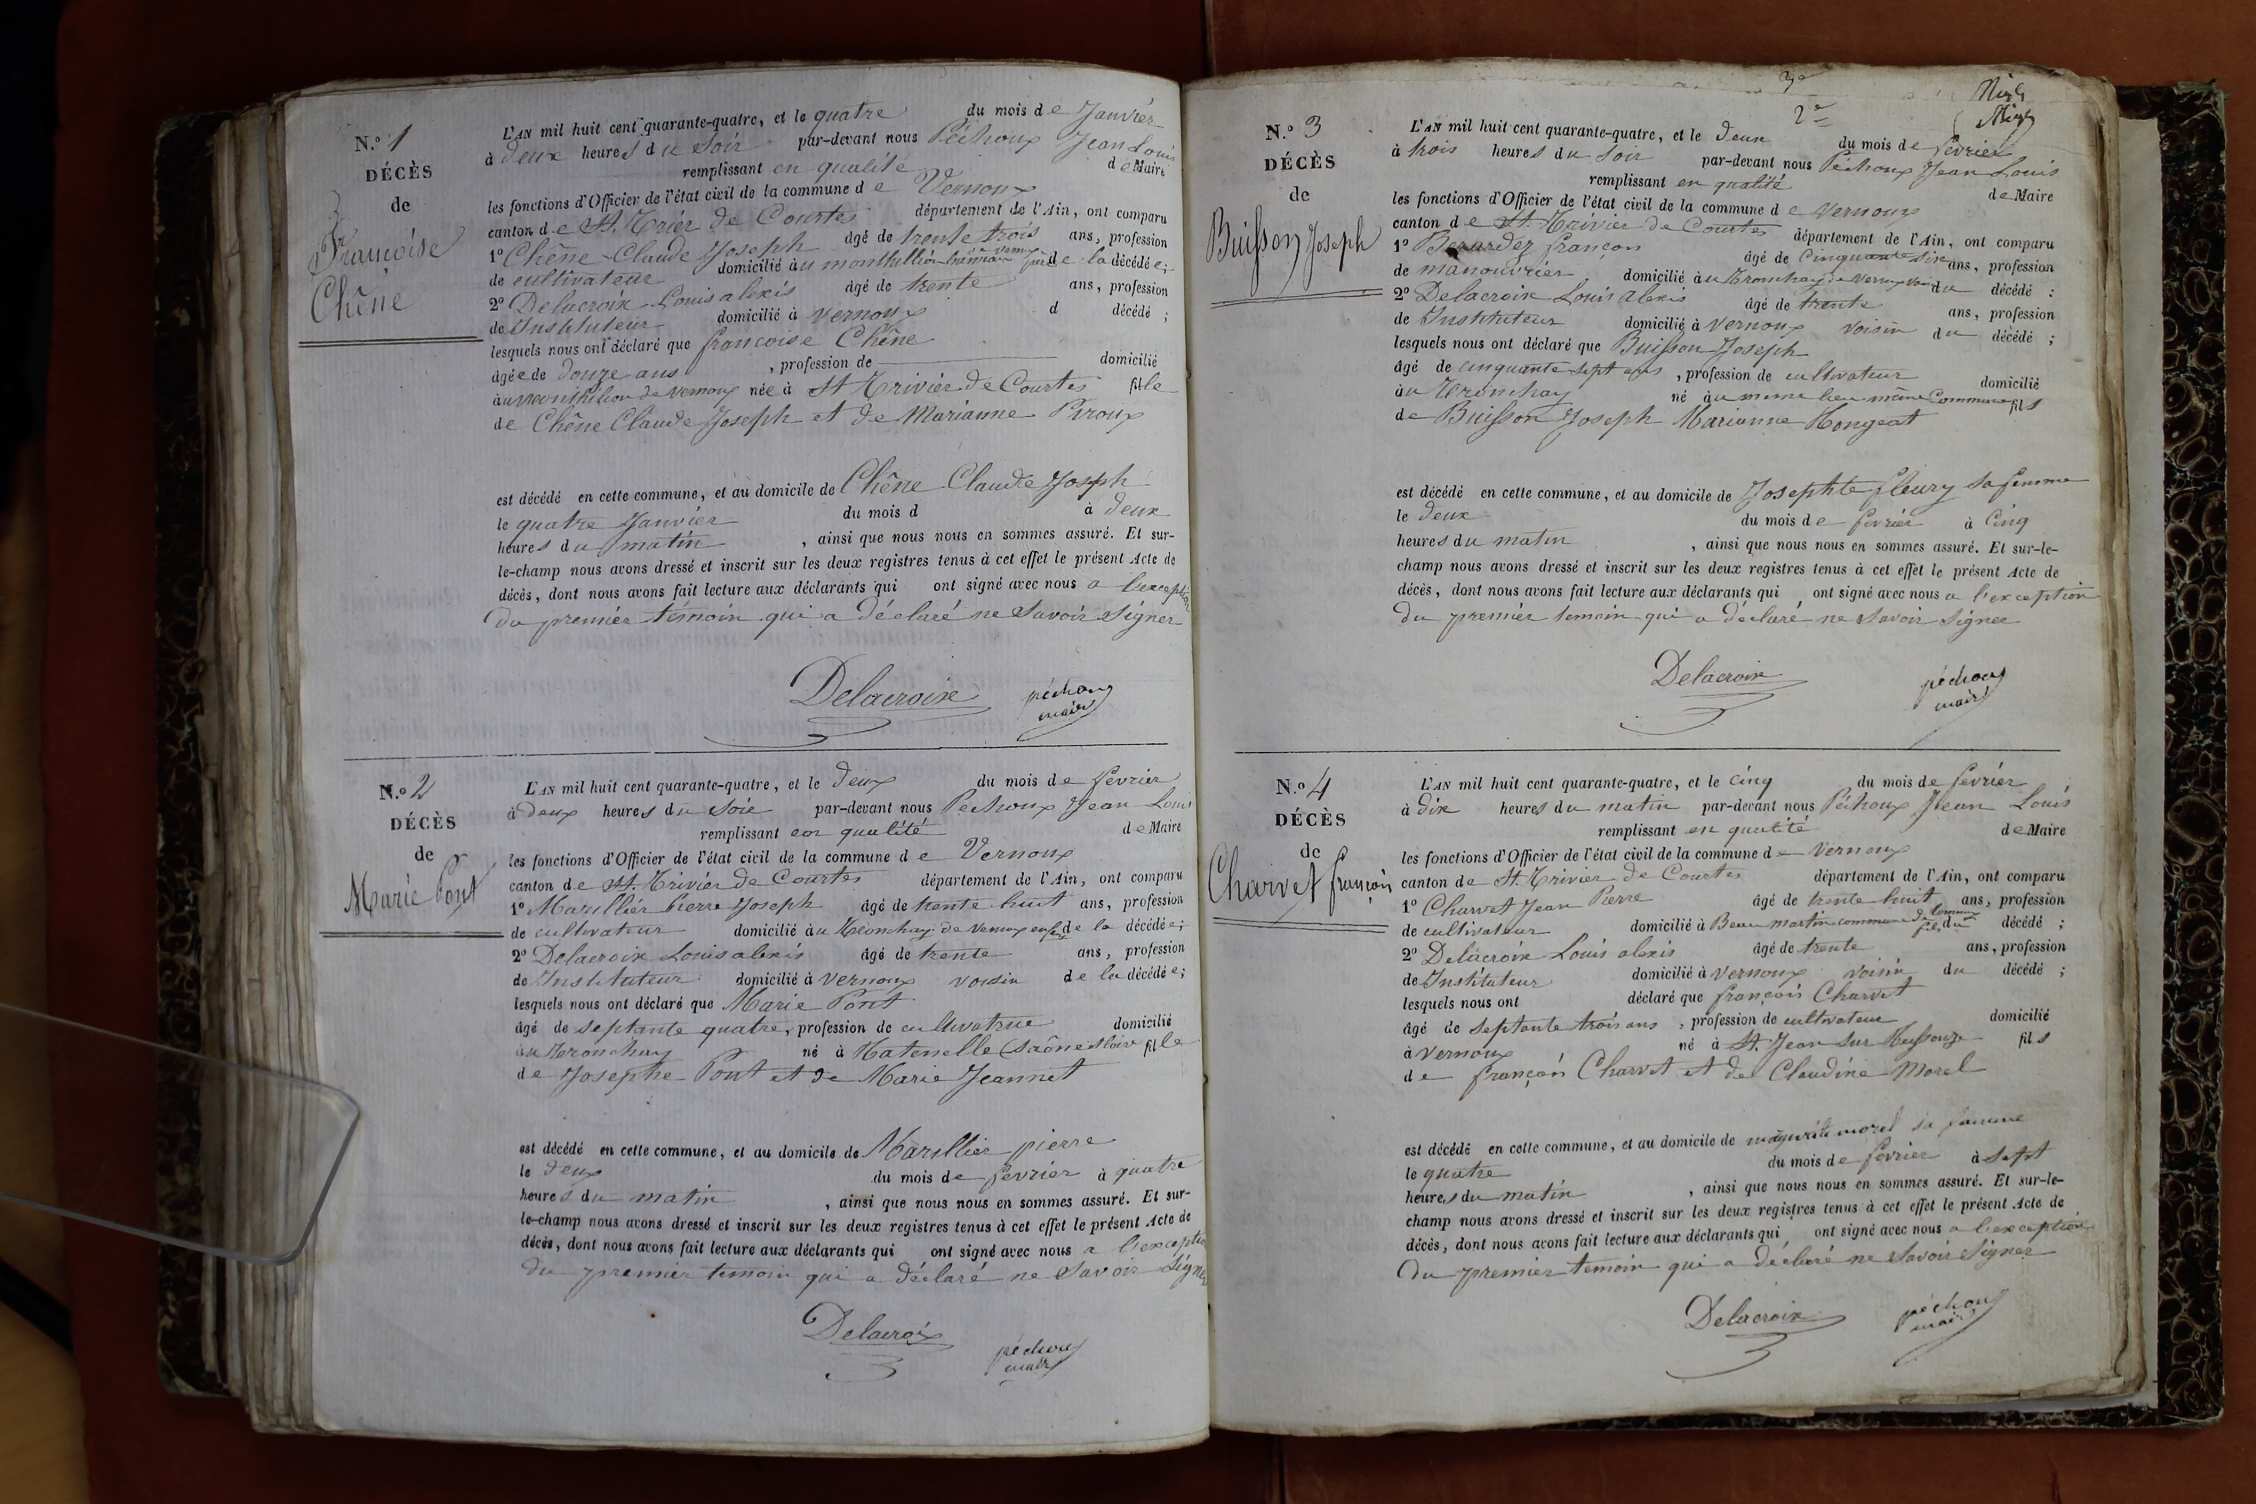 N.º 1
DÉCÈS
de
Françoise
Chêne
L'AN mil huit cent quarante-quatre, et le quatre du mois de Janvier
à deux heures du soir par-devant nous Péchoux Jean Louis
remplissant en qualité de Maire
les fonctions d'Officier de l'état civil de la commune de Vernoux
canton de St. Trivier de Courtes département de l'Ain, ont comparu
1º Chêne Claude Joseph âgé de trente trois ans, profession
de cultivateur domicilié au de la décédée;
2º Delacroix Louis alexis âgé de trente ans, profession
de Instituteur domicilié à Vernoux d décédé ;
lesquels nous ont déclaré que francoise Chêne
âgée de douze ans , profession de domicilié
au de Vernoux née à St Trivier de Courtes fille
de Chêne Claude Joseph et de Marianne Piroux
est décédé en cette commune, et au domicile de Chêne Claude Joseph
le quatre Janvier du mois d à deux
heures du matin , ainsi que nous nous en sommes assuré. Et sur-
le-champ nous avons dressé et inscrit sur les deux registres tenus à cet effet le présent Acte de
décès, dont nous avons fait lecture aux déclarants qui ont signé avec nous a l'exception
du premier témoin qui a déclaré ne savoir signer
Delacroix péchoux
maire
N.º 2
DÉCÈS
de
Marie Pont
L'AN mil huit cent quarante-quatre, et le deux du mois de fevrier
à deux heures du soir par-devant nous Péchoux Jean Louis
remplissant en qualité de Maire
les fonctions d'Officier de l'état civil de la commune de Vernoux
canton de St. Trivier de Courtes département de l'Ain, ont comparu
1º Marillier pierre Joseph âgé de trente huit ans, profession
de cultivateur domicilié au Tronchay de Vernoux de la décédée;
2º Delacroix Louis alexis âgé de trente ans, profession
de Instituteur domicilié à Vernoux voisin de la décédée;
lesquels nous ont déclaré que Marie Pont
âgé de septante quatre, profession de cultivatrice domicilié
au Tronchay né à Ratenelle Saône et loire fille
de Josephe Pont et de Marie Jeannet
est décédé en cette commune, et au domicile de Marillier pierre
le deux du mois de fevrier à quatre
heures du matin , ainsi que nous nous en sommes assuré. Et sur-
le-champ nous avons dressé et inscrit sur les deux registres tenus à cet effet le présent Acte de
décès, dont nous avons fait lecture aux déclarants qui ont signé avec nous a l'exception
du premier temoin qui a déclaré ne savoir signer
Delacroix péchoux
maire
3e
2e
N.º 3
DÉCÈS
de
Buisson Joseph
L'AN mil huit cent quarante-quatre, et le deux du mois de fevrier
à trois heures du soir par-devant nous Péchoux Jean Louis
remplissant en qualité de Maire
les fonctions d'Officier de l'état civil de la commune de Vernoux
canton de St. Trivier de Courtes département de l'Ain, ont comparu
1º françois âgé de Cinquante six ans, profession
de manouvrier domicilié au Tronchay de Vernoux du décédé ;
2º Delacroix Louis alexis âgé de trente ans, profession
de Instituteur domicilié à Vernoux voisin du décédé ;
lesquels nous ont déclaré que Buisson Joseph
âgé de cinquante sept ans , profession de cultivateur domicilié
au Tronchay né au meme lieu même Commune fils
de Buisson Joseph Marianne
est décédé en cette commune, et au domicile de Josephte fleury sa femme
le deux du mois de fevrier à Cinq
heures du matin , ainsi que nous nous en sommes assuré. Et sur-le-
champ nous avons dressé et inscrit sur les deux registres tenus à cet effet le présent Acte de
décès, dont nous avons fait lecture aux déclarants qui ont signé avec nous a l'exception
du premier temoin qui a déclaré ne savoir signer
Delacroix péchoux
maire
N.º 4
DÉCÈS
de
Charvet françois
L'AN mil huit cent quarante-quatre, et le cinq du mois de fevrier
à dix heures du matin par-devant nous Péchoux Jean Louis
remplissant en qualité de Maire
les fonctions d'Officier de l'état civil de la commune de Vernoux
canton de St. Trivier de Courtes département de l'Ain, ont comparu
1º Charvet Jean Pierre âgé de trente huit ans, profession
de cultivateur domicilié à commune de fils du décédé ;
2º Delacroix Louis alexis âgé de trente ans, profession
de Instituteur domicilié à Vernoux voisin du décédé ;
lesquels nous ont déclaré que françois Charvet
âgé de septante trois ans , profession de cultivateur domicilié
à Vernoux né à St. Jean sur Reyssouze fils
de françois Charvet et de Claudine Morel
est décédé en cette commune, et au domicile de morel sa famme
le quatre du mois de fevrier à sept
heures du matin , ainsi que nous nous en sommes assuré. Et sur-le-
champ nous avons dressé et inscrit sur les deux registres tenus à cet effet le présent Acte de
décès, dont nous avons fait lecture aux déclarants qui ont signé avec nous a l'exception
du premier temoin qui a déclaré ne savoir signer
Delacroix péchoux
maire